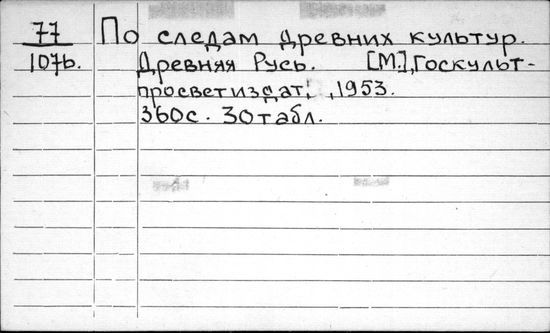 77 По следам древних культур.
107б. Древняя Русь. [М.], Госкульт-
просветиздат, ,1953.
360с. 30табл.